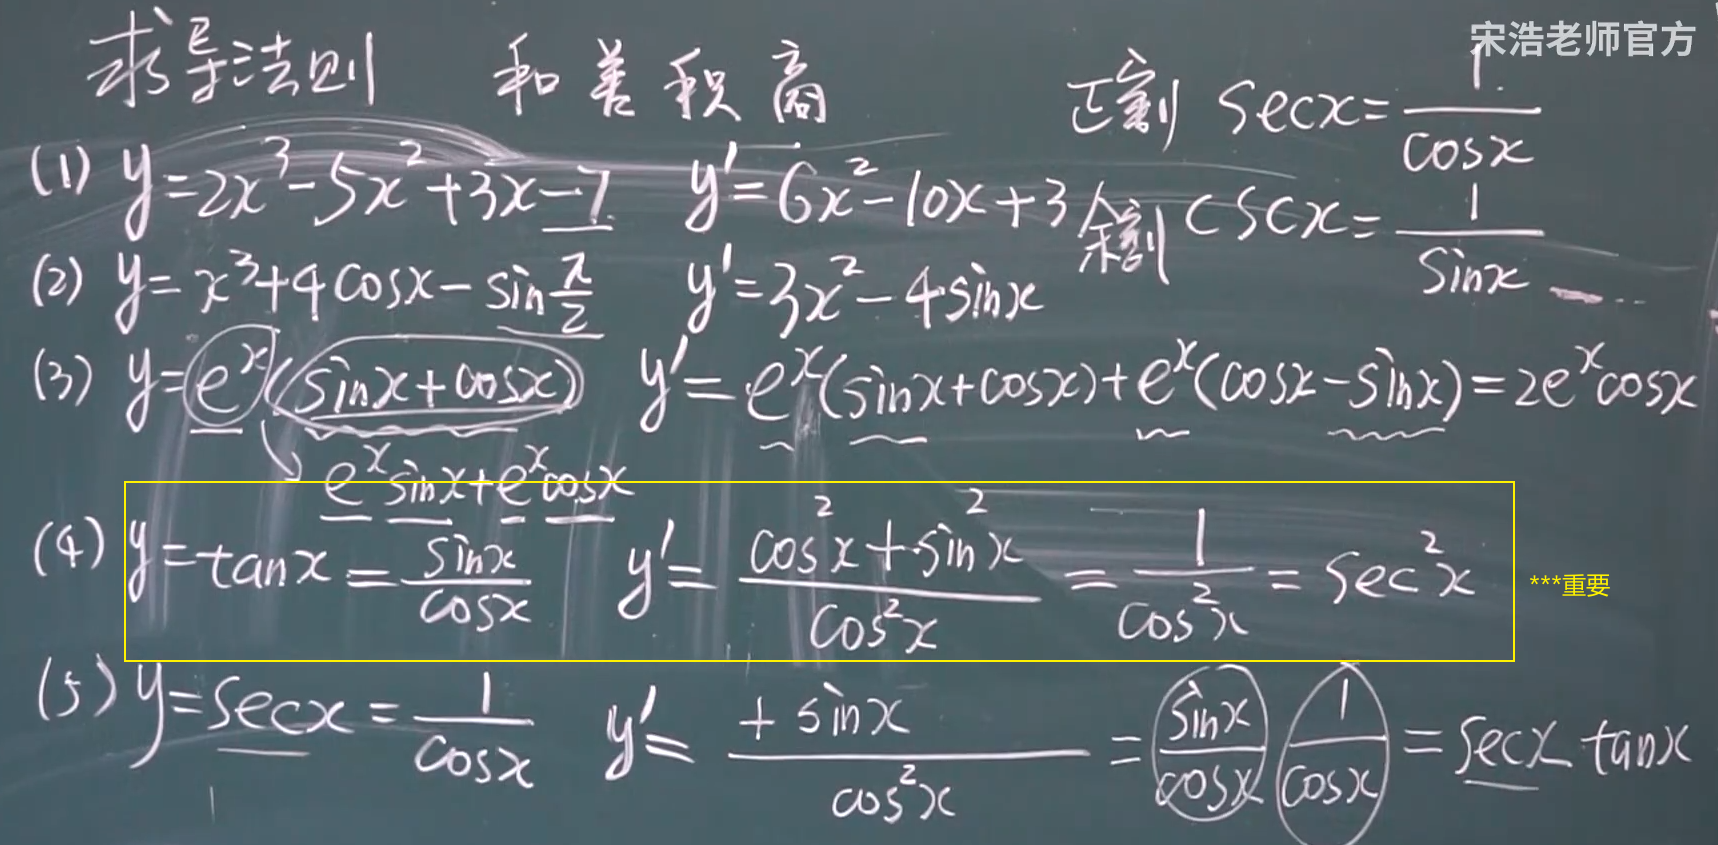 宋浩老师官方
求导法则 和差积商
正割 secx = 1/cosx
余割 cscx = 1/sinx ...
(1) y = 2x³ - 5x² + 3x - 7 y' = 6x² - 10x + 3
(2) y = x³ + 4cosx - sin π/2 y' = 3x² - 4sinx
(3) y = eˣ(sinx + cosx) y' = eˣ(sinx + cosx) + eˣ(cosx - sinx) = 2eˣcosx
eˣsinx + eˣcosx
(4) y = tanx = sinx/cosx y' = (cos²x + sin²x)/cos²x = 1/cos²x = sec²x ***重要
(5) y = secx = 1/cosx y' = + sinx/cos²x = sinx/cosx 1/cosx = secx tanx